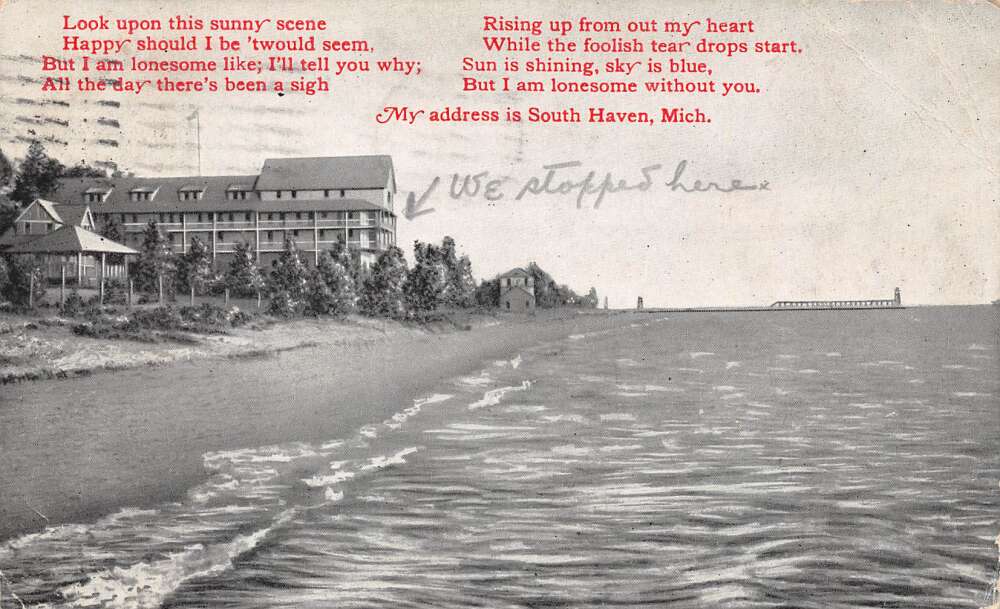 Look upon this sunny scene
Happy should I be 'twould seem,
But I am lonesome like; I'll tell you why;
All the day there's been a sigh
Rising up from out my heart
While the foolish tear drops start.
Sun is shining, sky is blue,
But I am lonesome without you.
My address is South Haven, Mich.
We stopped here